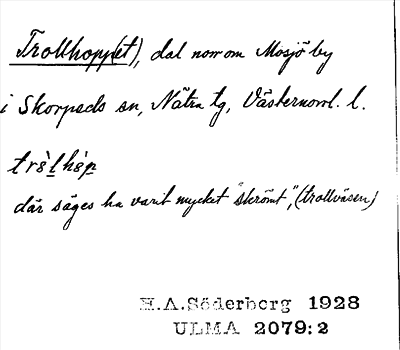 Trollhopp(et), dal norr om Mosjö by
i Skorpeds sn, Nätra tg, Västernorrl. l.
där säges ha varit mycket "skrömt", (trollväsen)
H.A.Söderberg 1928
ULMA 2079:2